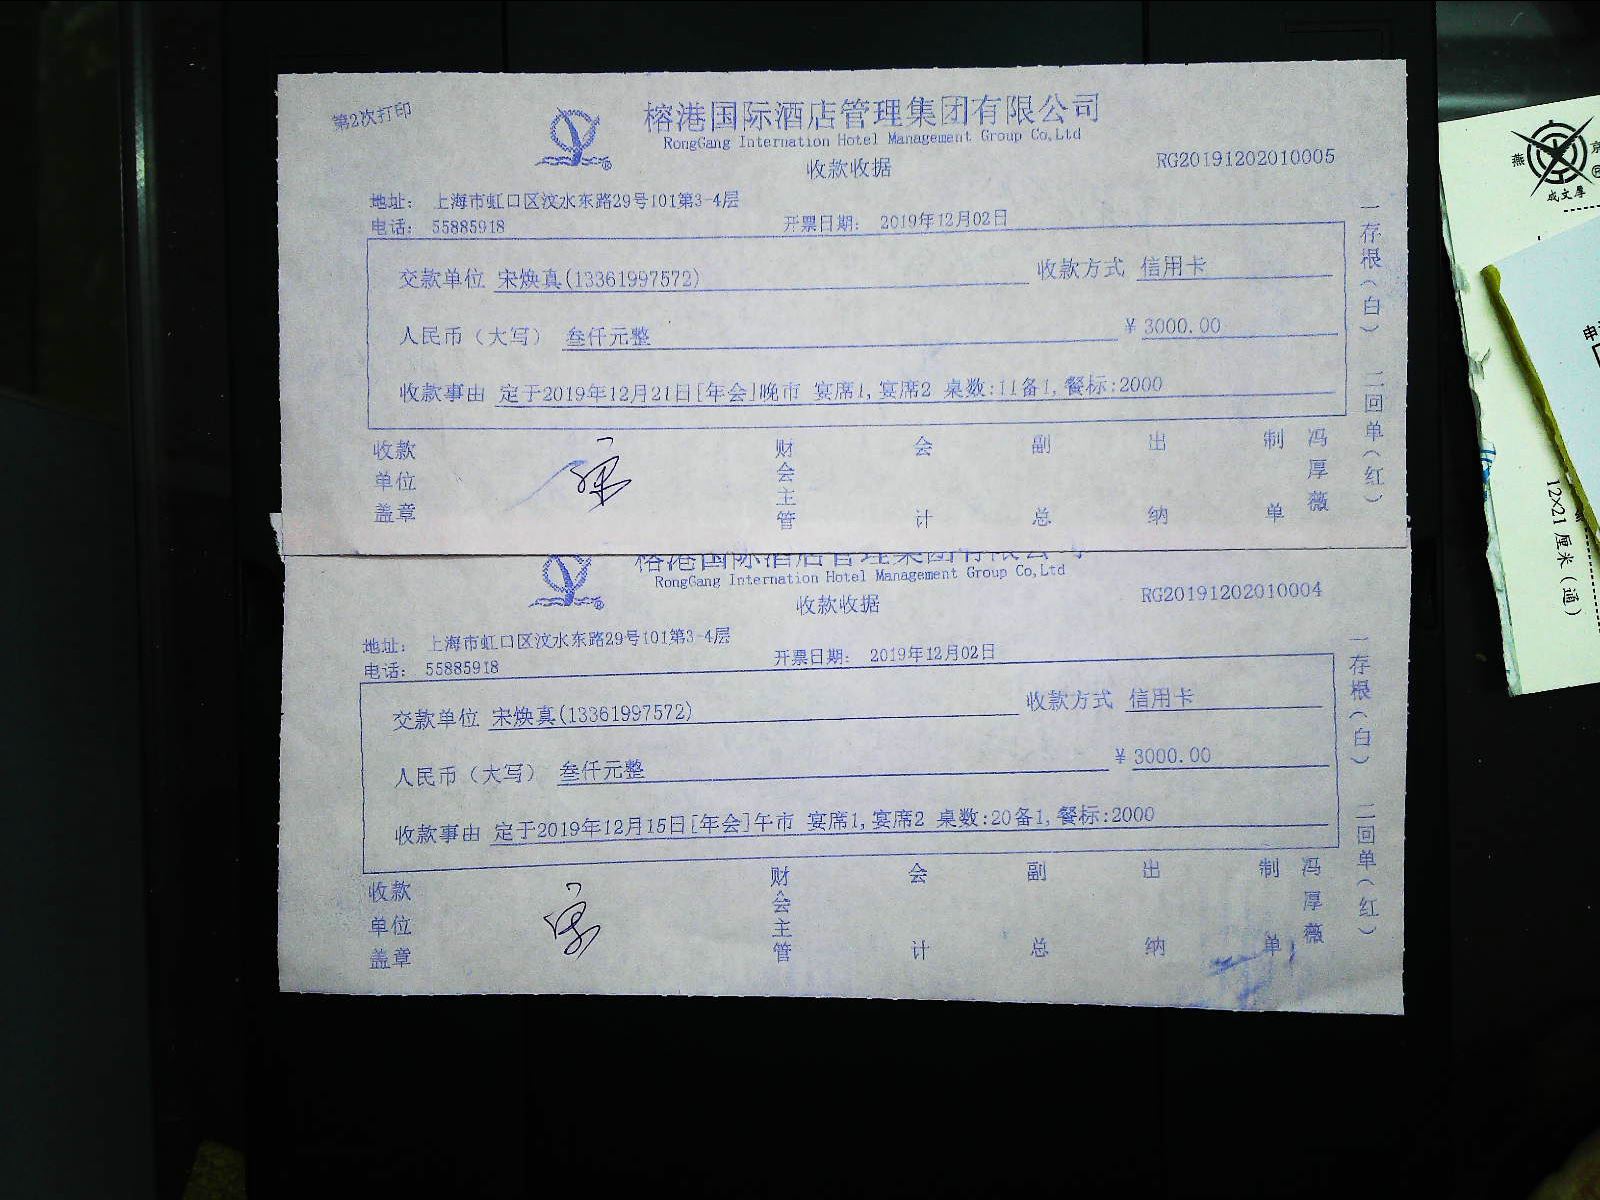 第2次打印
榕港国际酒店管理集团有限公司
RongGang Internation Hotel Management Group Co,Ltd
收款收据
RG20191202010005
地址： 上海市虹口区汶水东路29号101第3-4层
电话： 55885918 开票日期： 2019年12月02日
交款单位 宋焕真(13361997572) 收款方式 信用卡
人民币（大写） 叁仟元整 ￥3000.00
收款事由 定于2019年12月21日[年会]晚市 宴席1,宴席2 桌数:11备1,餐标:2000
收款单位盖章 财会主管 会计 副总 出纳 制单 冯厚薇
一存根（白） 二回单（红）
榕港国际酒店管理集团有限公司
RongGang Internation Hotel Management Group Co,Ltd
收款收据
RG20191202010004
地址： 上海市虹口区汶水东路29号101第3-4层
电话： 55885918 开票日期： 2019年12月02日
交款单位 宋焕真(13361997572) 收款方式 信用卡
人民币（大写） 叁仟元整 ￥3000.00
收款事由 定于2019年12月15日[年会]午市 宴席1,宴席2 桌数:20备1,餐标:2000
收款单位盖章 财会主管 会计 副总 出纳 制单 冯厚薇
一存根（白） 二回单（红）
燕 京
成文厚
申
12×21厘米（通）